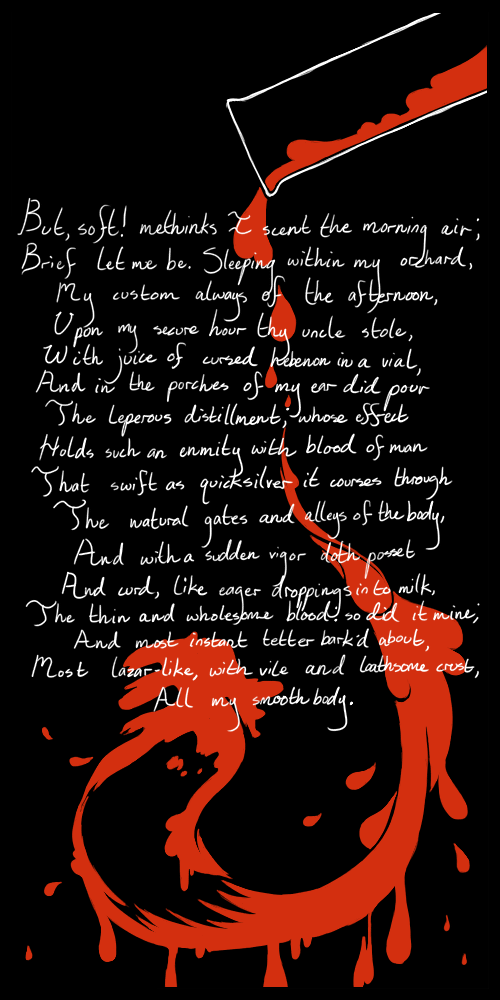 But, soft! methinks I scent the morning air;
Brief let me be. Sleeping within my orchard,
My custom always of the afternoon,
Upon my secure hour thy uncle stole,
With juice of cursed hebenon in a vial,
And in the porches of my ear did pour
The leperous distillment; whose effect
Holds such an enmity with blood of man
That swift as quicksilver it courses through
The natural gates and alleys of the body,
And with a sudden vigor doth posset
And curd, like eager droppings into milk,
The thin and wholesome blood: so did it mine;
And most instant tetter bark'd about,
Most lazar-like, with vile and loathsome crust,
All my smooth body.